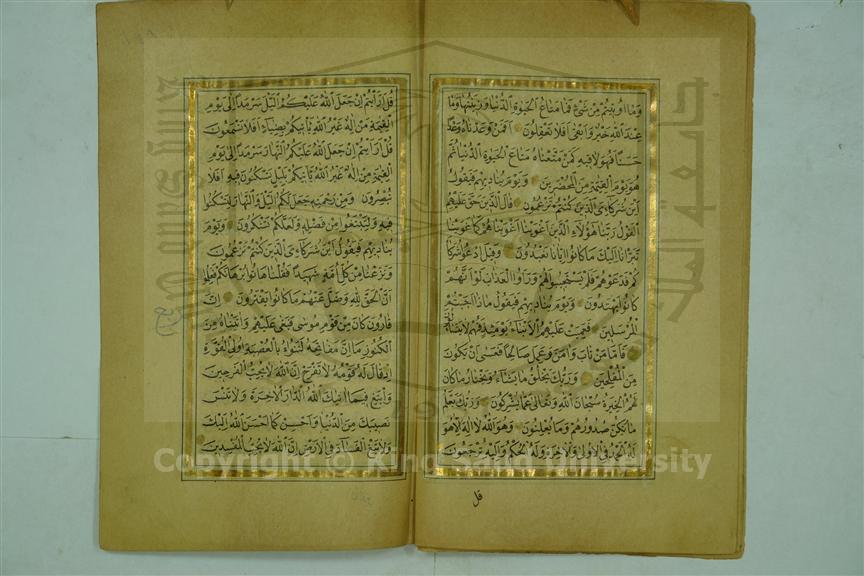 وما اوتيتم من شئ فمتاع الحيوة الدنيا وزينتها وما
عند الله خير وابقى افلا تعقلون افمن وعدناه وعدا
حسنا فهو لاقيه كمن متعناه متاع الحيوة الدنيا ثم
هو يوم القيمة من المحضرين ويوم يناديهم فيقول
اين شركاءى الذين كنتم تزعمون قال الذين حق عليهم
القول ربنا هؤلاء الذين اغوينا اغويناهم كما غوينا
تبرأنا اليك ما كانوا ايانا يعبدون وقيل ادعوا شركا
كم فدعوهم فلم يستجيبوا لهم وراوا العذاب لو انهم
كانوا يهتدون ويوم يناديهم فيقول ماذا اجبتم
المرسلين فعميت عليهم الانباء يومئذ فهم لا يتسائلون
فاما من تاب وامن وعمل صالحا فعسى ان يكون
من المفلحين وربك يخلق ما يشاء ويختار ما كان
لهم الخيرة سبحان الله وتعالى عما يشركون وربك يعلم
ما تكن صدورهم وما يعلنون وهو الله لا اله الا هو
له الحمد في الاولى والاخرة وله الحكم واليه ترجعون
قل
قل ارايتم ان جعل الله عليكم اليل سرمدا الى يوم
القيمة من اله غير الله ياتيكم بضياء افلا تسمعون
قل ارايتم ان جعل الله عليكم النهار سرمدا الى يوم
القيمة من اله غير الله ياتيكم بليل تسكنون فيه افلا
تبصرون ومن رحمته جعل لكم اليل والنهار لتسكنوا
فيه ولتبتغوا من فضله ولعلكم تشكرون ويوم
يناديهم فيقول اين شركاءى الذين كنتم تزعمون
ونزعنا من كل امة شهيدا فقلنا هاتوا برهانكم فعلموا
ان الحق لله وضل عنهم ما كانوا يفترون ان
قارون كان من قوم موسى فبغى عليهم واتيناه من
الكنوز ما ان مفاتحه لتنوأ بالعصبة اولى القوة
اذ قال له قومه لا تفرح ان الله لا يحب الفرحين
وابتغ فيما اتيك الله الدار الاخرة ولا تنس
نصيبك من الدنيا واحسن كما احسن الله اليك
ولا تبغ الفساد في الارض ان الله لا يحب المفسدين
Copyright © King Saud University